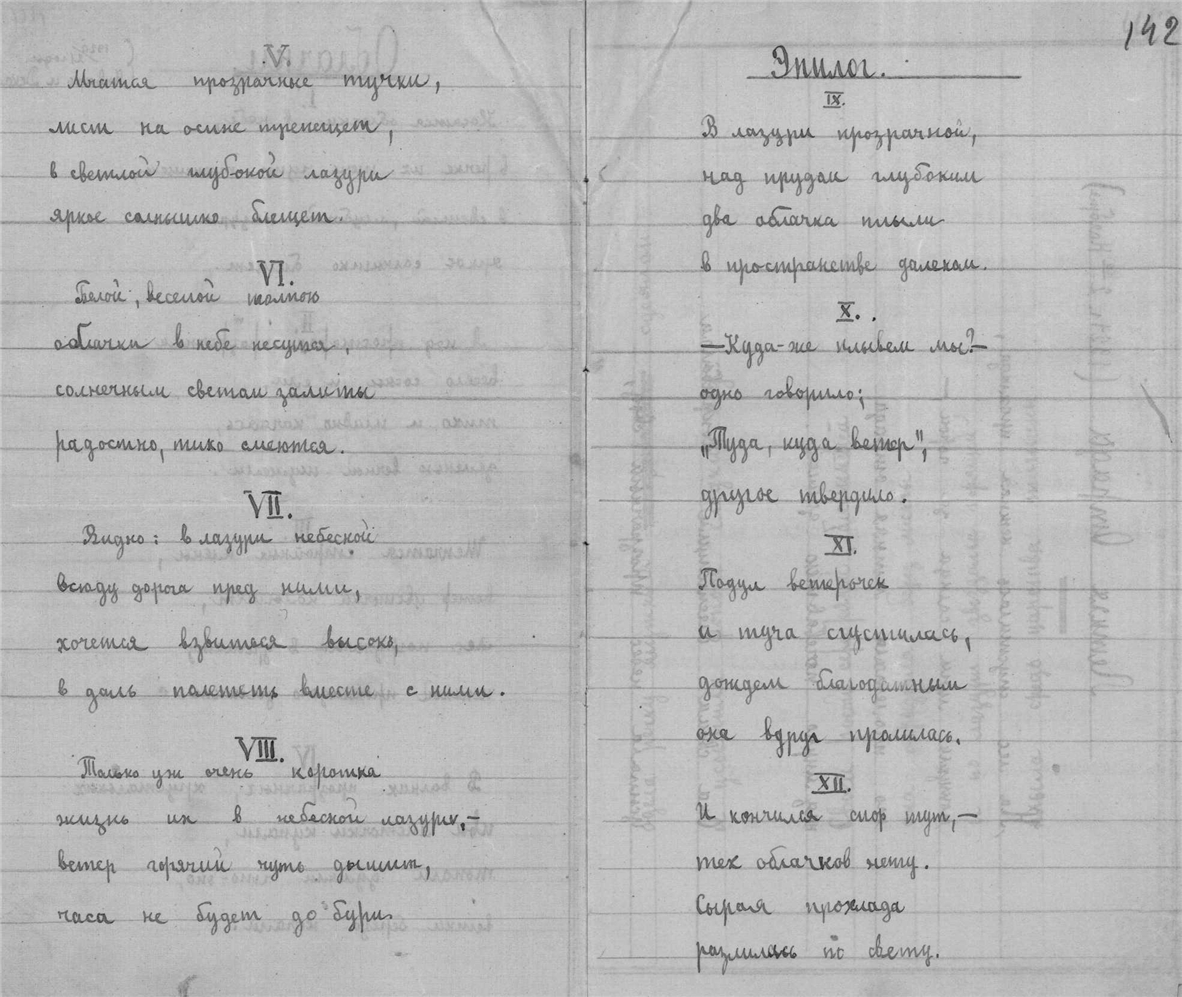 V.
Мчатся прозрачные тучки,
лист на осине трепещет,
в светлой глубокой лазури
яркое солнышко блещет.
VI.
Белой, веселой толпою
облачки в небе несутся,
солнечным светом залиты
радостно, тихо смеются.
VII.
Видно: в лазури небеской
всюду дорога пред ними,
хочется взвиться высоко,
в даль полететь вместе с ними.
VIII.
Только уж очень коротка
жизнь их в небеской лазури,—
ветер горячий чуть дышит,
часа не будет до бури.
142
Эпилог.
IX.
В лазури прозрачной,
над прудом глубоким
два облачка плыли
в пространстве далеком.
X.
—Куда-же плывем мы?—
одно говорило;
„Туда, куда ветер",
другое твердило.
XI.
Подул ветерочек
и туча сгустилась,
дождем благодатным
она вдруг пролилась.
XII.
И кончился спор тут,—
тех облачков нету.
Сырая прохлада
разлилась по свету.